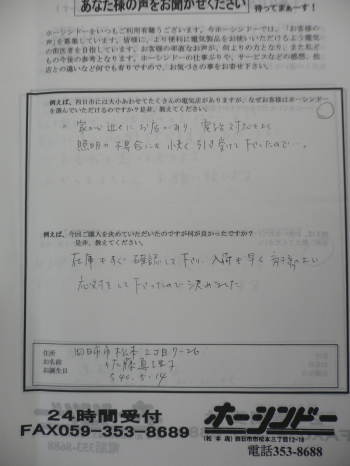 あなた様の声をお聞かせください 待ってまぁーす!
ホーシンドーをいつもご利用有難うございます。今ホーシンドーでは、「お客様の
声」を募集しています。皆様に、より便利に電気製品をお使いいただけるよう電気
の御医者を目指しています。お客様の率直なお声が、何よりの力となり、また私ど
もの今後の参考となります。ホーシンドーの仕事ぶりや、サービスなどの感想、他
店との違いなど何でも有りですので、お気づきの事をお寄せ下さい。
例えば、四日市には大小あわせてたくさんの電気店がありますが、なぜお客様はホーシンドー
を選んでいただいたのですか?是非、教えてください。
家から近くにお店があり、電話で
照明の不具合にも快く引き受けて下さったので…。
例えば、今回ご購入を決めていただいたのですが何が良かったですか?
是非、教えてください。
在庫もすぐ確認して下さり、入荷も早く
応対をして下さったので決めました。
住所
お名前
お誕生日
四日市市松本2丁目7-26
佐藤
S40.5.14
24時間受付
FAX059-353-8689
ホーシンドー
(松本店)四日市市松本三丁目12-18
電話353-8688